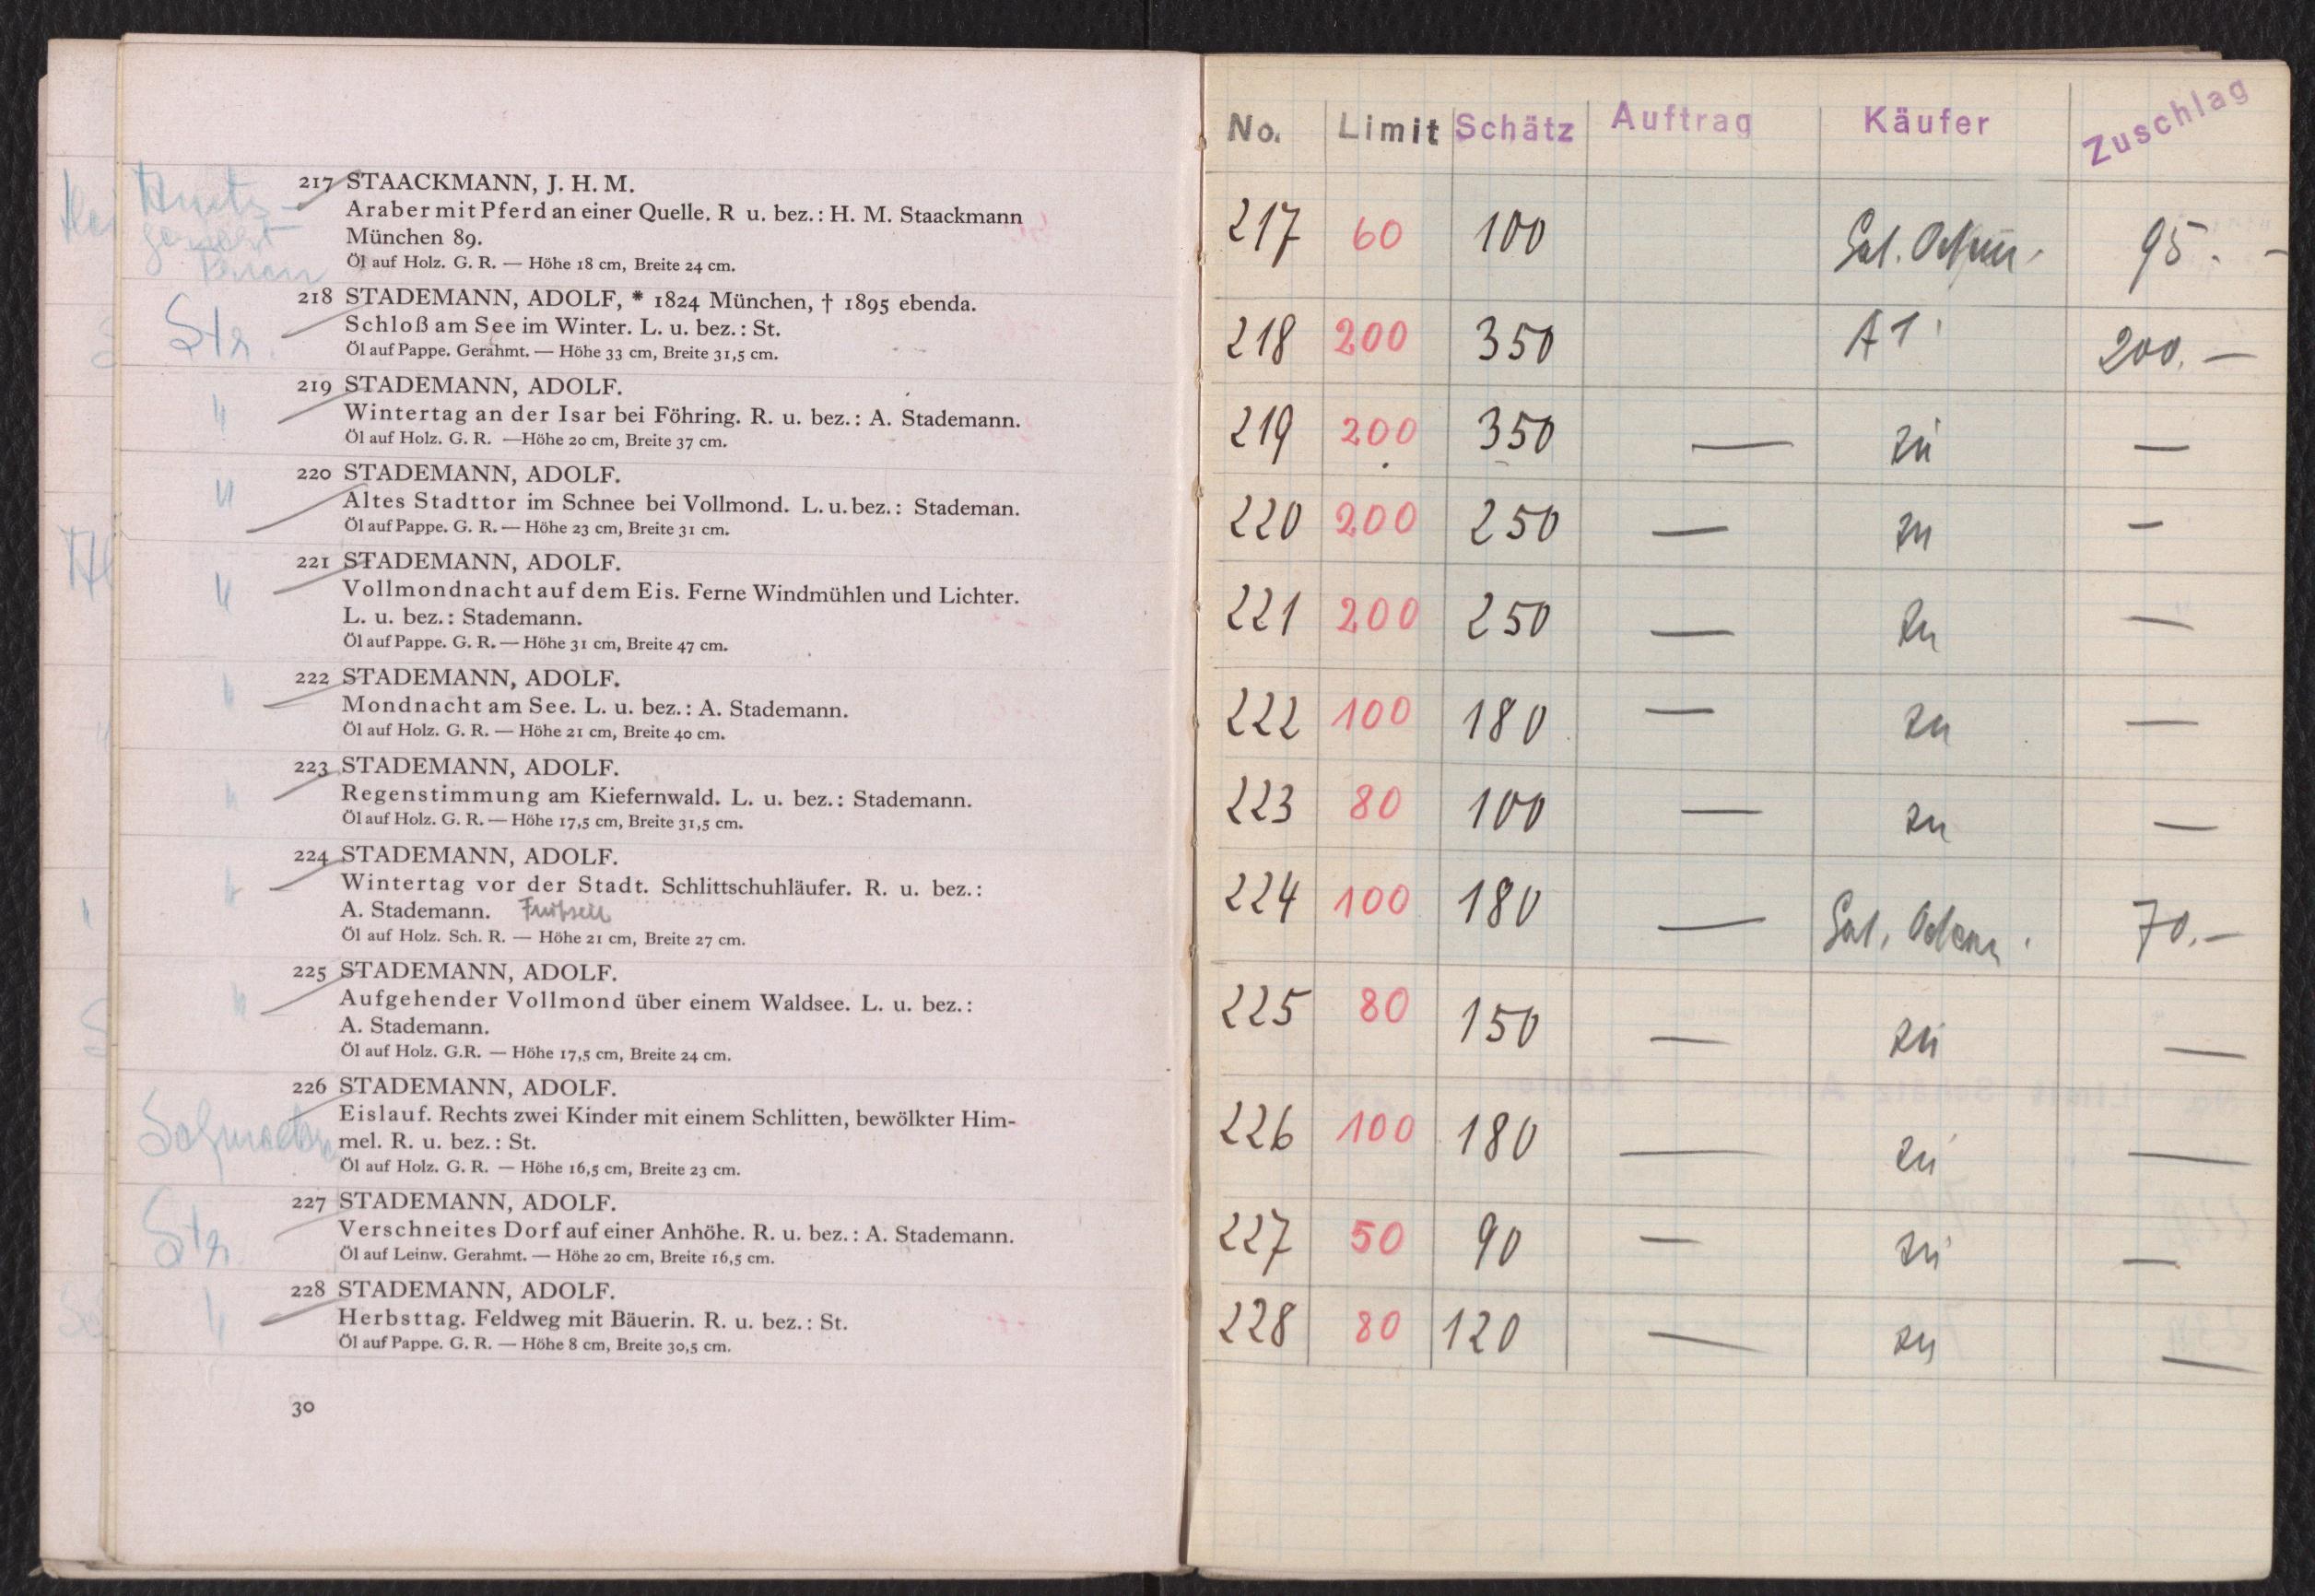 217 STAACKMANN, J. H. M.
Araber mit Pferd an einer Quelle. R u. bez.: H. M. Staackmann
München 89.
Öl auf Holz. G. R. — Höhe 18 cm, Breite 24 cm.
Str.
218 STADEMANN, ADOLF, * 1824 München, † 1895 ebenda.
Schloß am See im Winter. L. u. bez.: St.
Öl auf Pappe. Gerahmt. — Höhe 33 cm, Breite 31,5 cm.
"
219 STADEMANN, ADOLF.
Wintertag an der Isar bei Föhring. R. u. bez.: A. Stademann.
Öl auf Holz. G. R. —Höhe 20 cm, Breite 37 cm.
"
220 STADEMANN, ADOLF.
Altes Stadttor im Schnee bei Vollmond. L. u. bez.: Stademan.
Öl auf Pappe. G. R. — Höhe 23 cm, Breite 31 cm.
"
221 STADEMANN, ADOLF.
Vollmondnacht auf dem Eis. Ferne Windmühlen und Lichter.
L. u. bez.: Stademann.
Öl auf Pappe. G. R. — Höhe 31 cm, Breite 47 cm.
"
222 STADEMANN, ADOLF.
Mondnacht am See. L. u. bez.: A. Stademann.
Öl auf Holz. G. R. — Höhe 21 cm, Breite 40 cm.
"
223 STADEMANN, ADOLF.
Regenstimmung am Kiefernwald. L. u. bez.: Stademann.
Öl auf Holz. G. R. — Höhe 17,5 cm, Breite 31,5 cm.
"
224 STADEMANN, ADOLF.
Wintertag vor der Stadt. Schlittschuhläufer. R. u. bez.:
A. Stademann.
Öl auf Holz. Sch. R. — Höhe 21 cm, Breite 27 cm.
"
225 STADEMANN, ADOLF.
Aufgehender Vollmond über einem Waldsee. L. u. bez.:
A. Stademann.
Öl auf Holz. G.R. — Höhe 17,5 cm, Breite 24 cm.
226 STADEMANN, ADOLF.
Eislauf. Rechts zwei Kinder mit einem Schlitten, bewölkter Him-
mel. R. u. bez.: St.
Öl auf Holz. G. R. — Höhe 16,5 cm, Breite 23 cm.
Str.
227 STADEMANN, ADOLF.
Verschneites Dorf auf einer Anhöhe. R. u. bez.: A. Stademann.
Öl auf Leinw. Gerahmt. — Höhe 20 cm, Breite 16,5 cm.
"
228 STADEMANN, ADOLF.
Herbsttag. Feldweg mit Bäuerin. R. u. bez.: St.
Öl auf Pappe. G. R. — Höhe 8 cm, Breite 30,5 cm.
30
No. Limit Schätz Auftrag Käufer Zuschlag
217 60 100 Gal. 95.-
218 200 350 A 1 200.—
219 200 350 — zü —
220 200 250 — zu —
221 200 250 — zu —
222 100 180 — zu —
223 80 100 — zu —
224 100 180 — Gal. 70.—
225 80 150 — zü —
226 100 180 — zü —
227 50 90 — zü —
228 80 120 — zu —